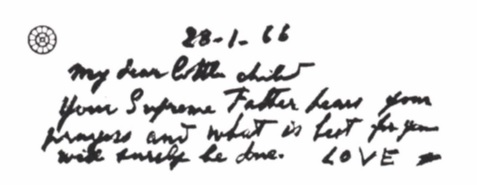 28-1-66
My dear little child
Your Supreme Father hears your
prayers and what is best for you
will surely be done. LOVE